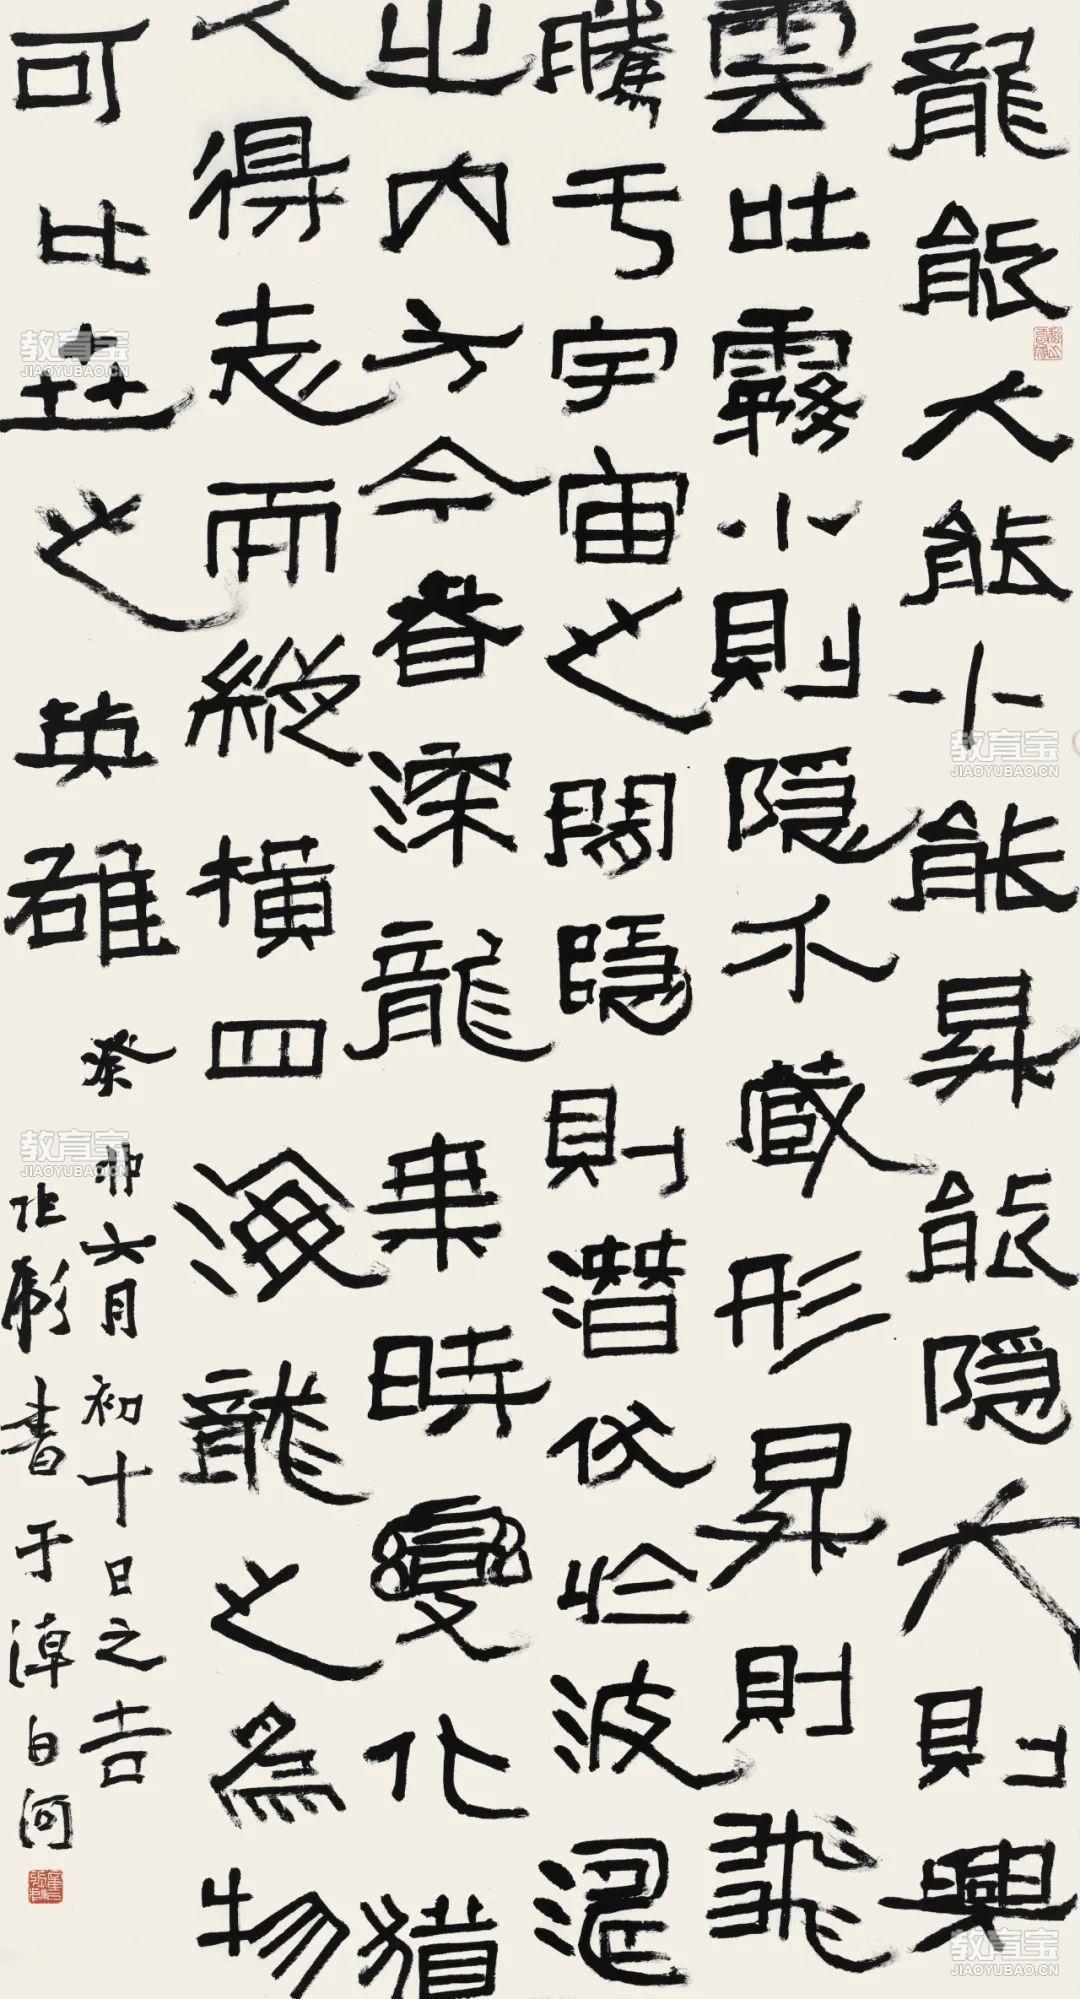 龍能大能小能昇能隐大則興
雲吐霧小則隐介藏形昇則飛
騰于宇宙之間隱則潜伏於波濤
之内方今春深龍乘時變化猶
人得志而縱橫四海龍之為物
可比世之英雄
癸卯六月初十日之吉
書于 白河
教育宝
JIAOYUBAO.CN
教育宝
JIAOYUBAO.CN
教育宝
JIAOYUBAO.CN
教育宝
JIAOYUBAO.CN